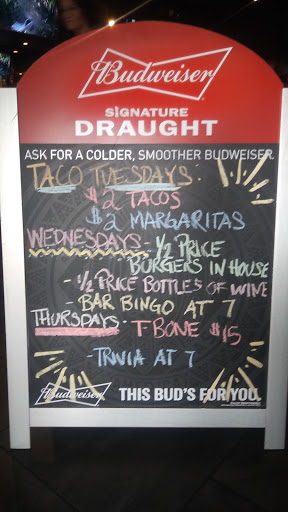 Budweiser
SIGNATURE
DRAUGHT
ASK FOR A COLDER, SMOOTHER BUDWEISER.
TACO TUESDAYS.
$2 TACOS
$2 MARGARITAS
WEDNESDAYS - 1/2 PRICE
BURGERS IN HOUSE
- 1/2 PRICE BOTTLES OF WINE
- BAR BINGO AT 7
THURSDAYS - T BONE $15
- TRIVIA AT 7
Budweiser THIS BUD'S FOR YOU.